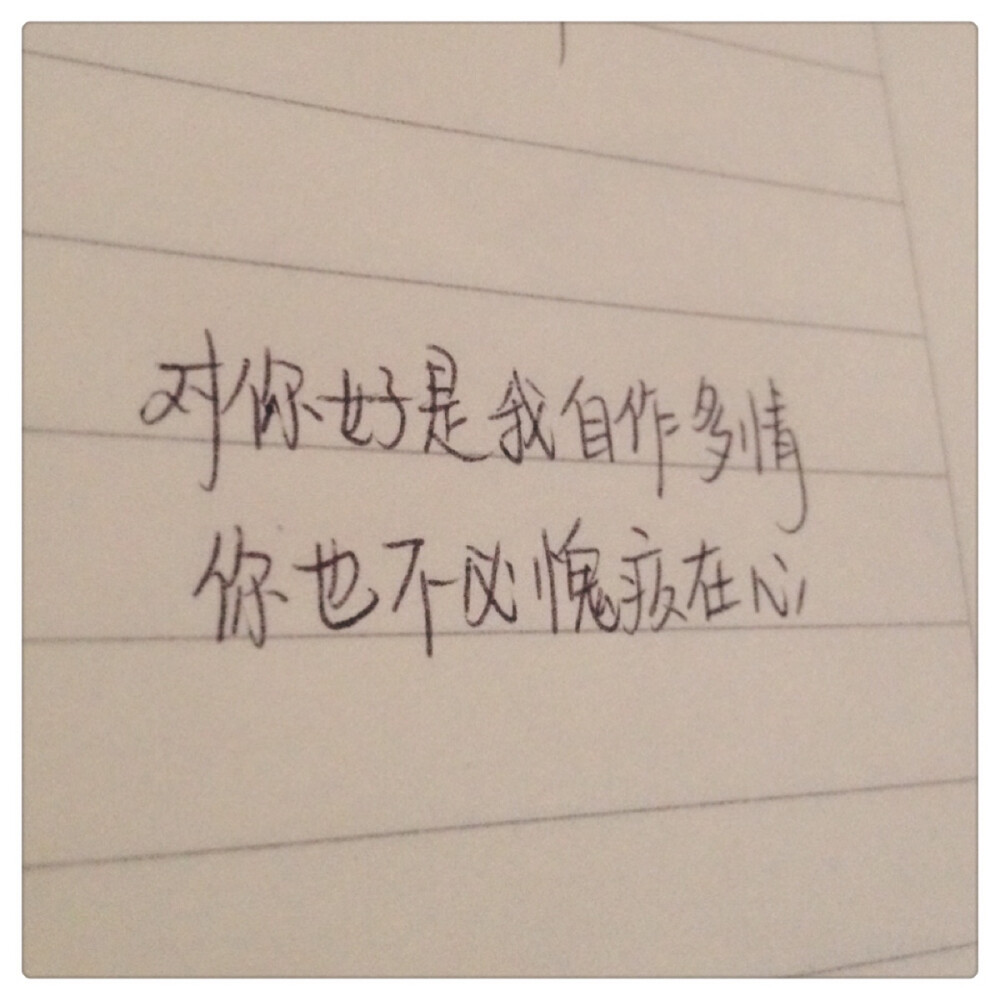 对你好是我自作多情
你也不必愧疚在心